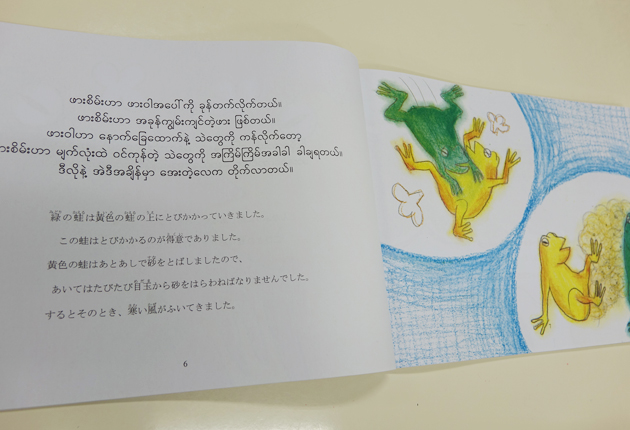 ဖားစိမ်းဟာ ဖားဝါအပေါ်ကို ခုန်တက်လိုက်တယ်။
ဖားစိမ်းဟာ အခုန်ကျွမ်းကျင်တဲ့ဖား ဖြစ်တယ်။
ဖားဝါဟာ နောက်ခြေထောက်နဲ့ သဲတွေကို ကန်လိုက်တော့
ဖားစိမ်းဟာ မျက်လုံးထဲ ဝင်ကုန်တဲ့ သဲတွေကို အကြိမ်ကြိမ်အခါခါ ခါချရတယ်။
ဒီလိုနဲ့ အဲဒီအချိန်မှာ အေးတဲ့လေက တိုက်လာတယ်။
緑の蛙は黄色の蛙の上にとびかかっていきました。
この蛙はとびかかるのが得意でありました。
黄色の蛙はあとあしで砂をとばしましたので、
あいてはたびたび目玉から砂をはらわねばなりませんでした。
するとそのとき、寒い風がふいてきました。
6